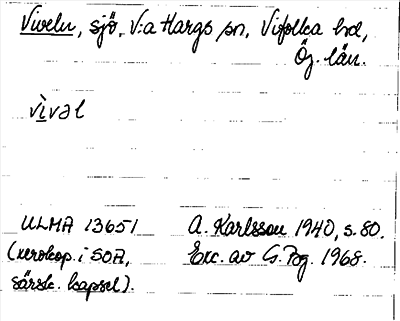 Viveln, sjö, V:a Hargs sn, Vifolka hd,
Ög. län.
vìvəl
ULMA 13651 A. Karlsson 1940, s. 80.
(xerokop. i SOA, Exc. av G. Pg. 1968.
särsk. kapsel).